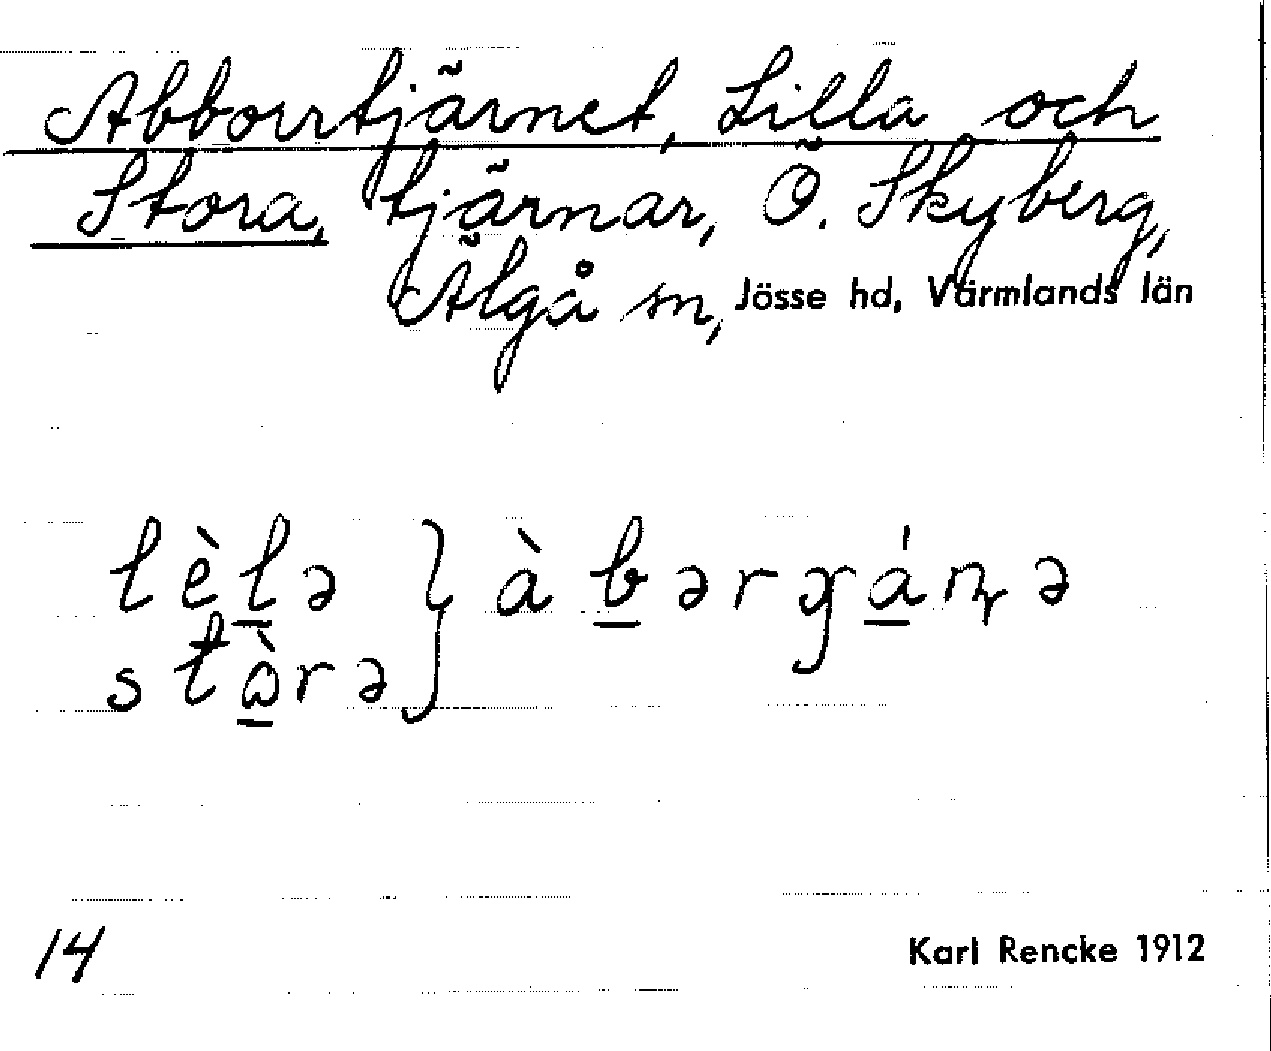 Abborrtjärnet, Lilla och
Stora, tjärnar, Ö. Skyberg,
Älgå sn, Jösse hd, Värmlands län
lèlə } àbər
stòrə
14
Karl Rencke 1912